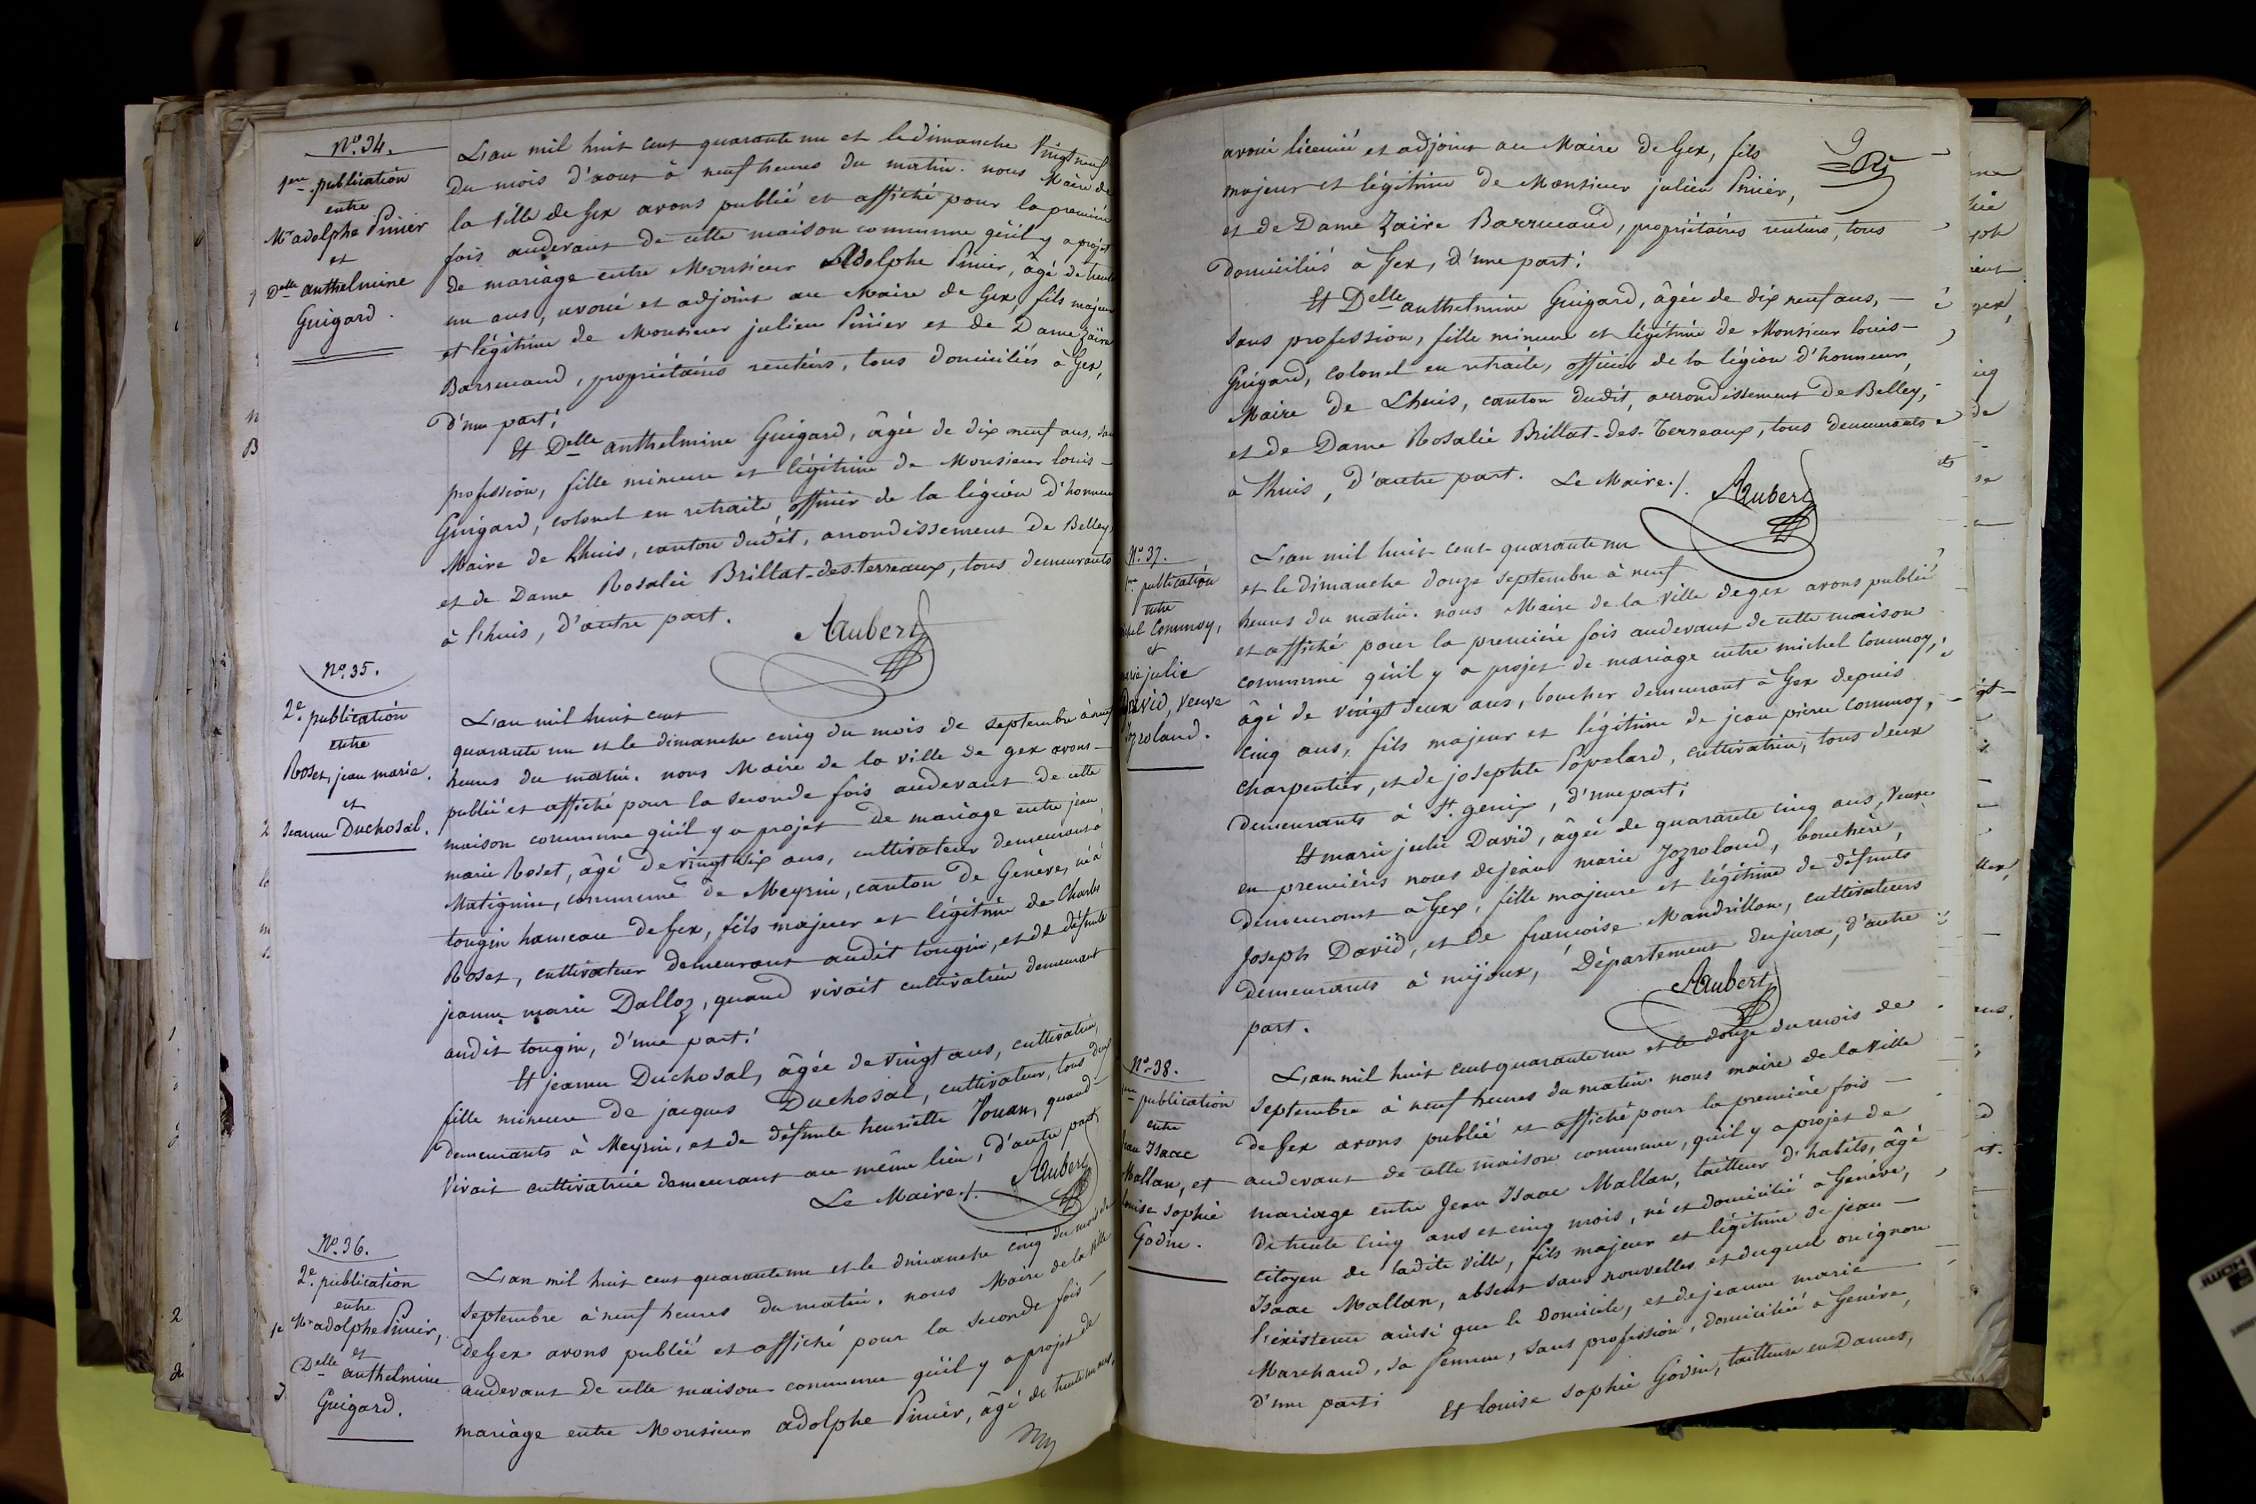 N.° 34.
1ère publication
entre
Mr adolphe Pinier
et
Delle anthelmine
Guigard.
L'an mil huit cent quarante un et le dimanche Vingt neuf
du mois d'aout à neuf heures du matin. nous Maire de
la Ville de Gex avons publié et affiché pour la première
fois audevant de cette maison commune qu'il y a projet
de mariage entre Monsieur Adolphe Pinier, âgé de trente
un ans, avoué et adjoint au Maire de Gex, fils majeur
et légitime de Monsieur julien Pinier et de Dame Zaïre
Barrucand, propriétaires rentiers, tous domiciliés à Gex,
d'une part;
Et Delle anthelmine Guigard, âgée de dix neuf ans, sans
profession, fille mineure et légitime de Monsieur louis-
Guigard, colonel en retraite, officier de la légion d'honneur
Maire de Lhuis, canton dudit, arrondissement de Belley,
et de Dame Rosalie Brillat-des-terreaux, tous demeurants
à Lhuis, d'autre part.
Aubert
N.° 35.
2e. publication
entre
Roset, jean marie.
et
Jeanne Duchosal.
L'an mil huit cent
quarante un et le dimanche cinq du mois de septembre à neuf
heures du matin. nous Maire de la ville de gex avons-
publié et affiché pour la seconde fois audevant de cette
maison commune qu'il y a projet de mariage entre jean
marie Roset, âgé de vingt six ans, cultivateur demeurant à
Matignin, commune de Meyrin, canton de Genève, né à
tougin hameau de Gex, fils majeur et légitime de Charles
Roset, cultivateur demeurant audit tougin, et de défunte
jeanne marie Dalloz, quand vivait cultivatrice demeurant
audit tougin, d'une part;
Et jeanne Duchosal, âgée de vingt ans, cultivatrice,
fille mineure de jacques Duchosal, cultivateur, tous deux
demeurants à Meyrin, et de défunte henriette Vouan, quand-
vivait cultivatrice demeurant au même lieu, d'autre part.
Le Maire./. Aubert
N.° 36.
2e. publication
entre
Mr adolphe Pinier,
et
Delle anthelmine
Guigard.
L'an mil huit cent quarante un et le dimanche cinq du mois de
septembre à neuf heures du matin. nous Maire de la ville
de Gex avons publié et affiché pour la seconde fois-
audevant de cette maison commune qu'il y a projet de
mariage entre Monsieur adolphe Pinier, âgé de trente un ans,
9
avoué licencié et adjoint au Maire de Gex, fils
majeur et légitime de Monsieur julien Pinier,
et de Dame Zaïre Barrucand, propriétaires rentiers, tous
domiciliés à Gex, d'une part;
Et Delle anthelmine Guigard, âgée de dix neuf ans, -
sans profession, fille mineure et légitime de Monsieur louis-
Guigard, colonel en retraite, officier de la légion d'honneur,
Maire de Lhuis, canton dudit, arrondissement de Belley,
et de Dame Rosalie Brillat-des-Terreaux, tous demeurants
à Lhuis, d'autre part. Le Maire./. Aubert
N.° 37.
1ère publication
entre
michel Commoy,
et
marie julie
David, veuve
jozroland.
L'an mil huit cent quarante un
et le dimanche douze septembre à neuf
heures du matin. nous Maire de la Ville de gex avons publié
et affiché pour la première fois audevant de cette maison
commune qu'il y a projet de mariage entre michel Commoy,
âgé de vingt deux ans, boucher demeurant à Gex depuis
cinq ans, fils majeur et légitime de jean pierre Commoy,
charpentier, et de josephte Popelard, cultivatrice, tous deux
demeurants à St. genix, d'une part;
Et marie julie David, âgée de quarante cinq ans, Veuve
en premières noces de jean marie jozroland, bouchère,
demeurant à Gex, fille majeure et légitime de défunts
Joseph David, et de francoise Mandrillon, cultivateurs
demeurants à mijoux, Département du jura, d'autre
part.
Aubert
N.° 38.
1ère publication
entre
Jean Isaac
Mallan, et
louise sophie
Godin.
L'an mil huit cent quarante un et le douze du mois de
septembre à neuf heures du matin. nous maire de la ville
de Gex avons publié et affiché pour la première fois-
audevant de cette maison commune, qu'il y a projet de
mariage entre Jean Isaac Mallan, tailleur d'habits, âgé
de trente cinq ans et cinq mois, né et domicilié à Genève,
citoyen de ladite ville, fils majeur et légitime de jean-
Isaac Mallan, absent sans nouvelles et duquel on ignore
l'existence ainsi que le domicile, et de jeanne marie
Marchand, sa femme, sans profession, domiciliée à Genève,
d'une part;
Et louise sophie Godin, tailleuse en Dames,